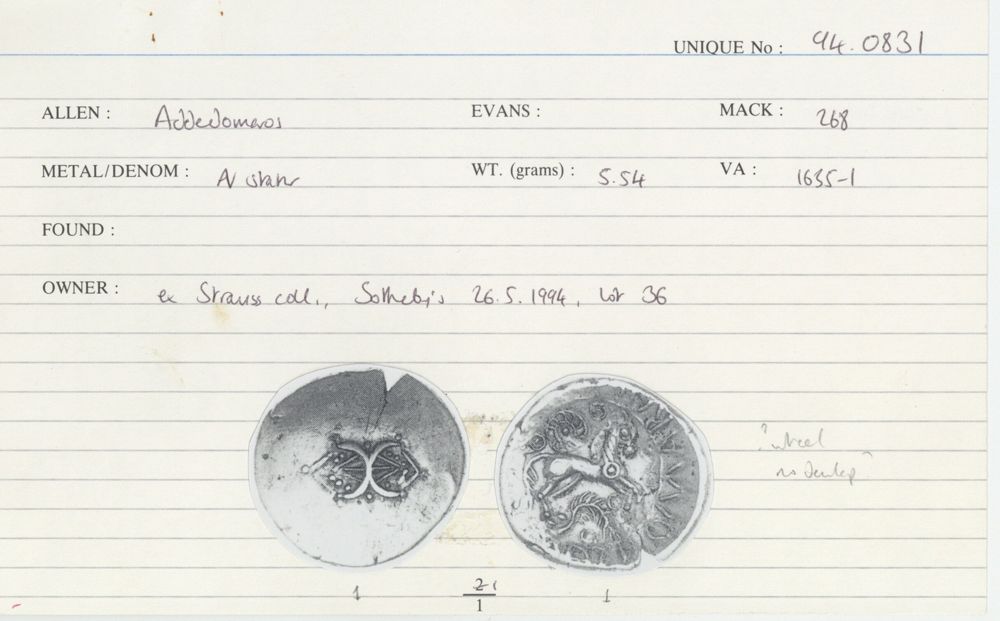 UNIQUE No : 94.0831
ALLEN : Addedomaros EVANS : MACK : 268
METAL/DENOM : AV stater WT. (grams) : 5.54 VA : 1635-1
FOUND :
OWNER : ex Strauss coll., Sotheby's 26.5.1994, lot 36
? wheel
no
1 1
1